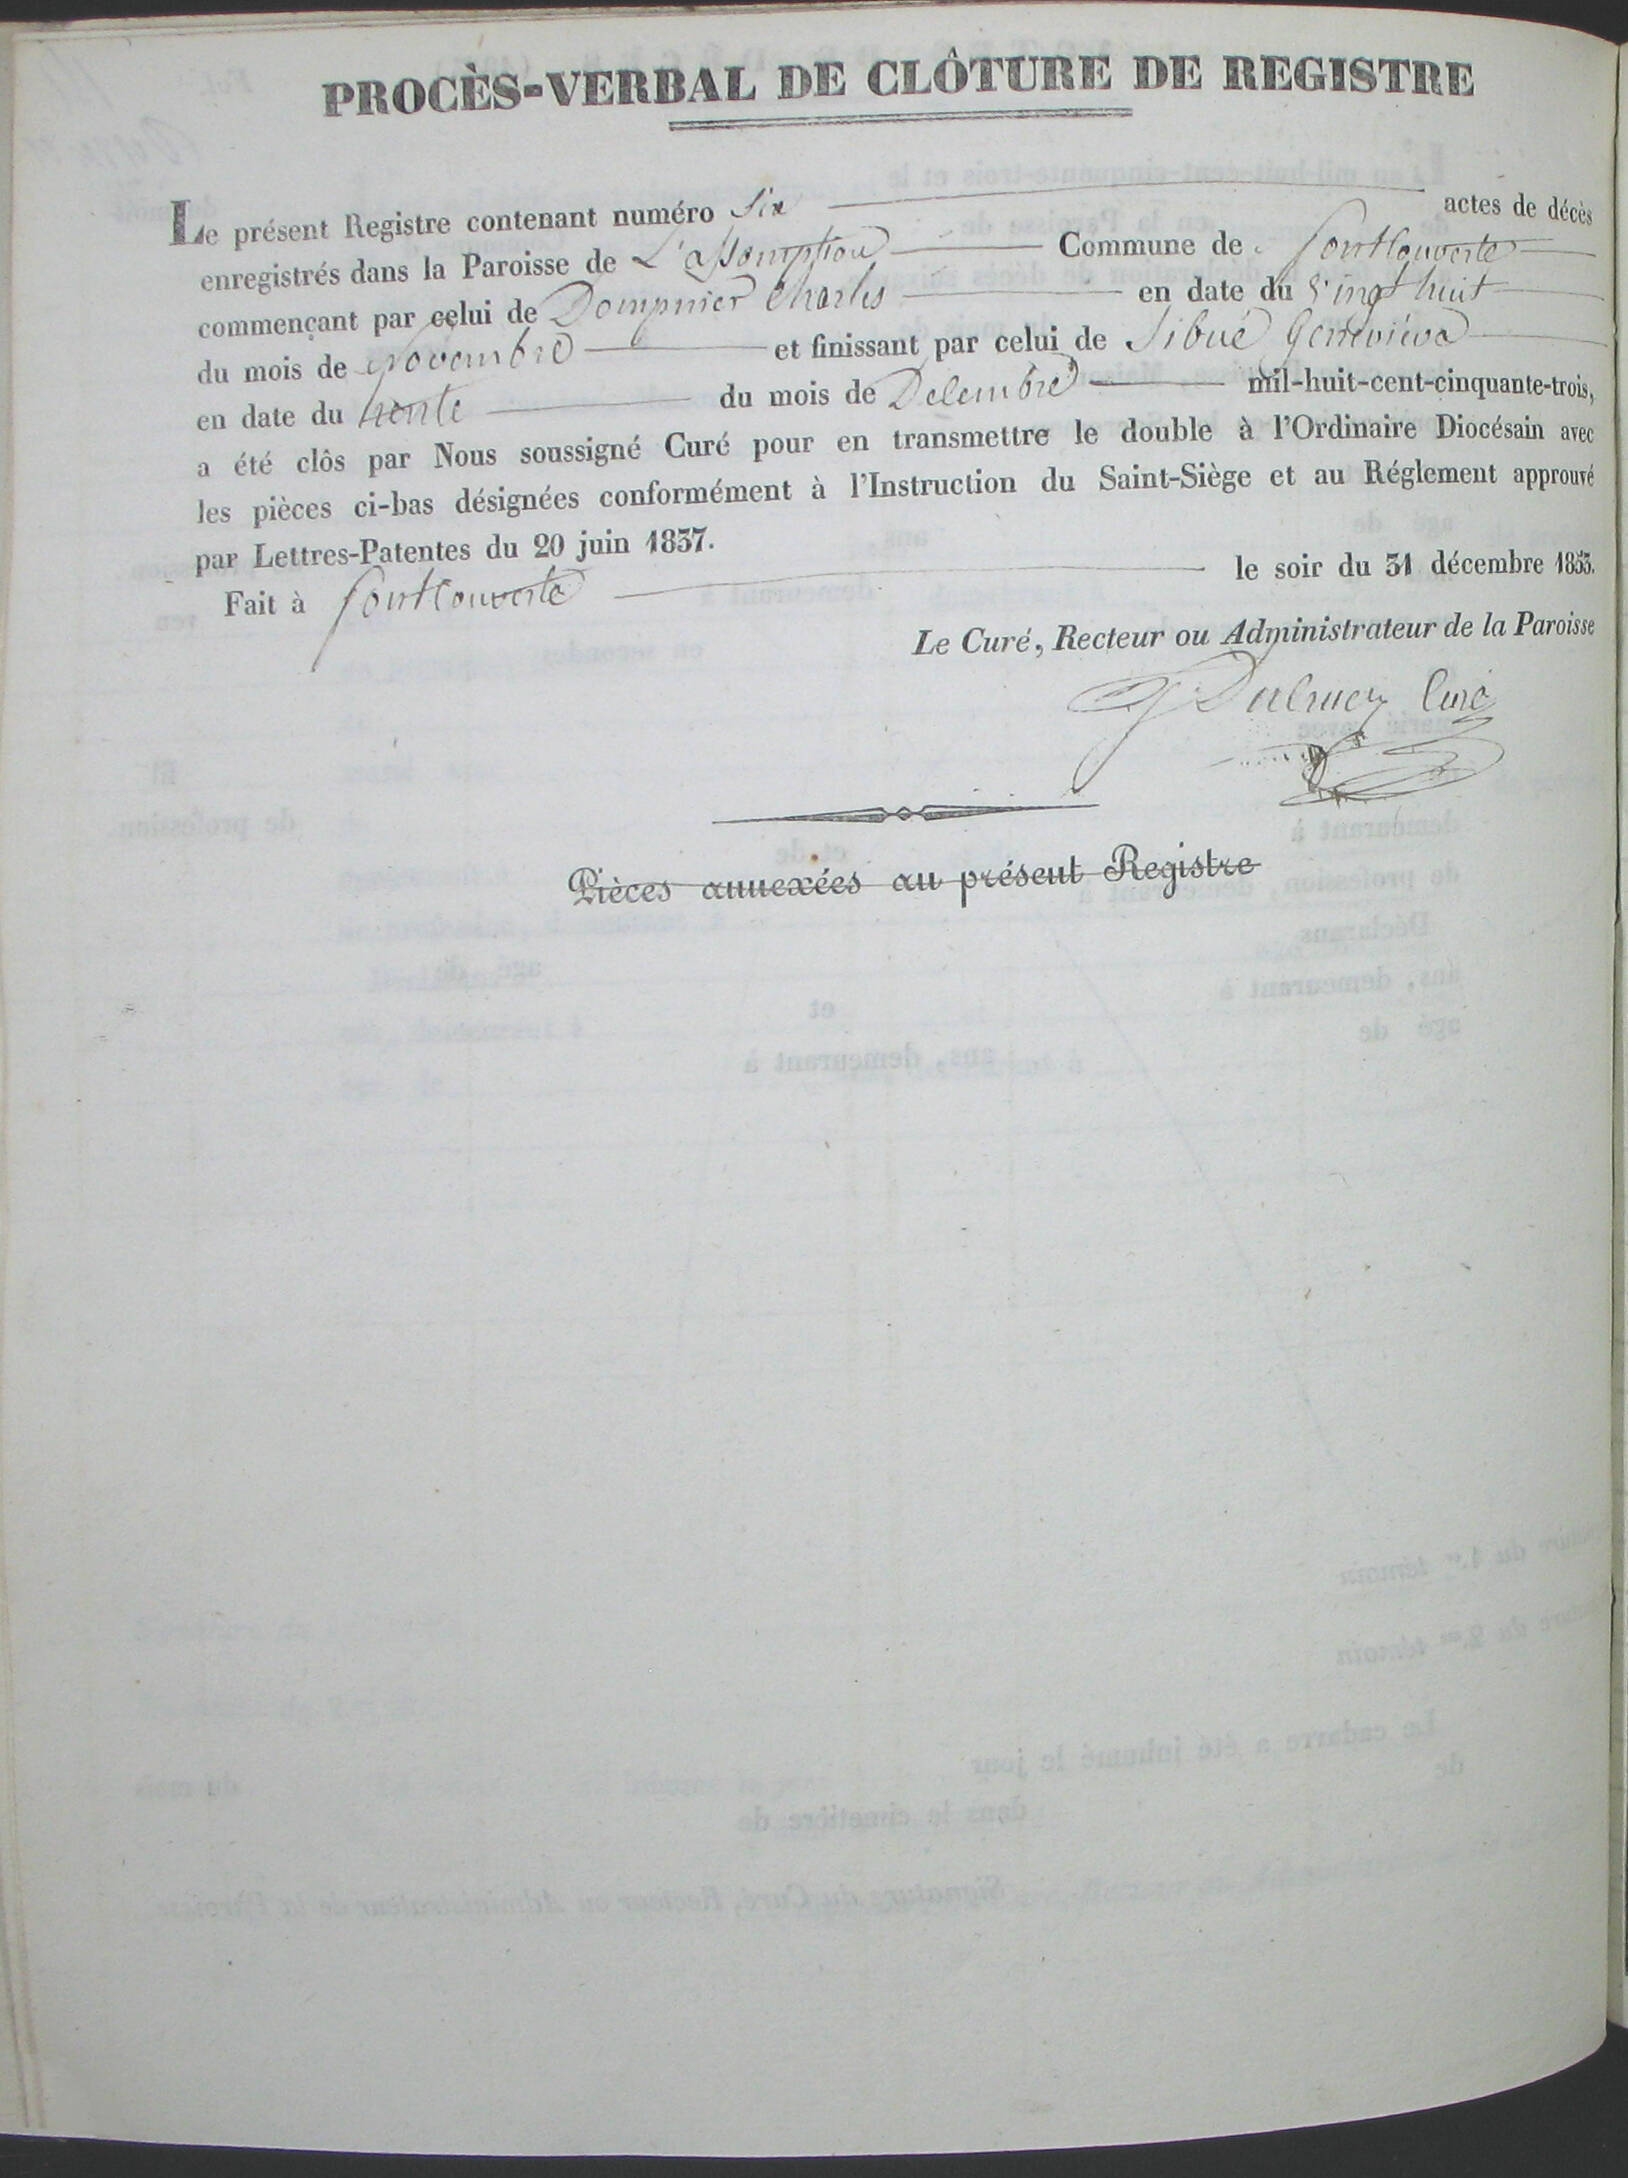 PROCÈS-VERBAL DE CLÔTURE DE REGISTRE
Le présent Registre contenant numéro Six actes de décès
enregistrés dans la Paroisse de L'assomption Commune de fontCouverte
commençant par celui de Dompnier Charles en date du vingt huit
du mois de novembre et finissant par celui de Sibué Geneviève
en date du trente du mois de Decembre mil-huit-cent-cinquante-trois,
a été clôs par Nous soussigné Curé pour en transmettre le double à l'Ordinaire Diocésain avec
les pièces ci-bas désignées conformément à l'Instruction du Saint-Siège et au Réglement approuvé
par Lettres-Patentes du 20 juin 1837.
Fait à fontCouverte le soir du 31 décembre 1853.
Le Curé, Recteur ou Administrateur de la Paroisse
Curé
Pièces annexées au présent Registre